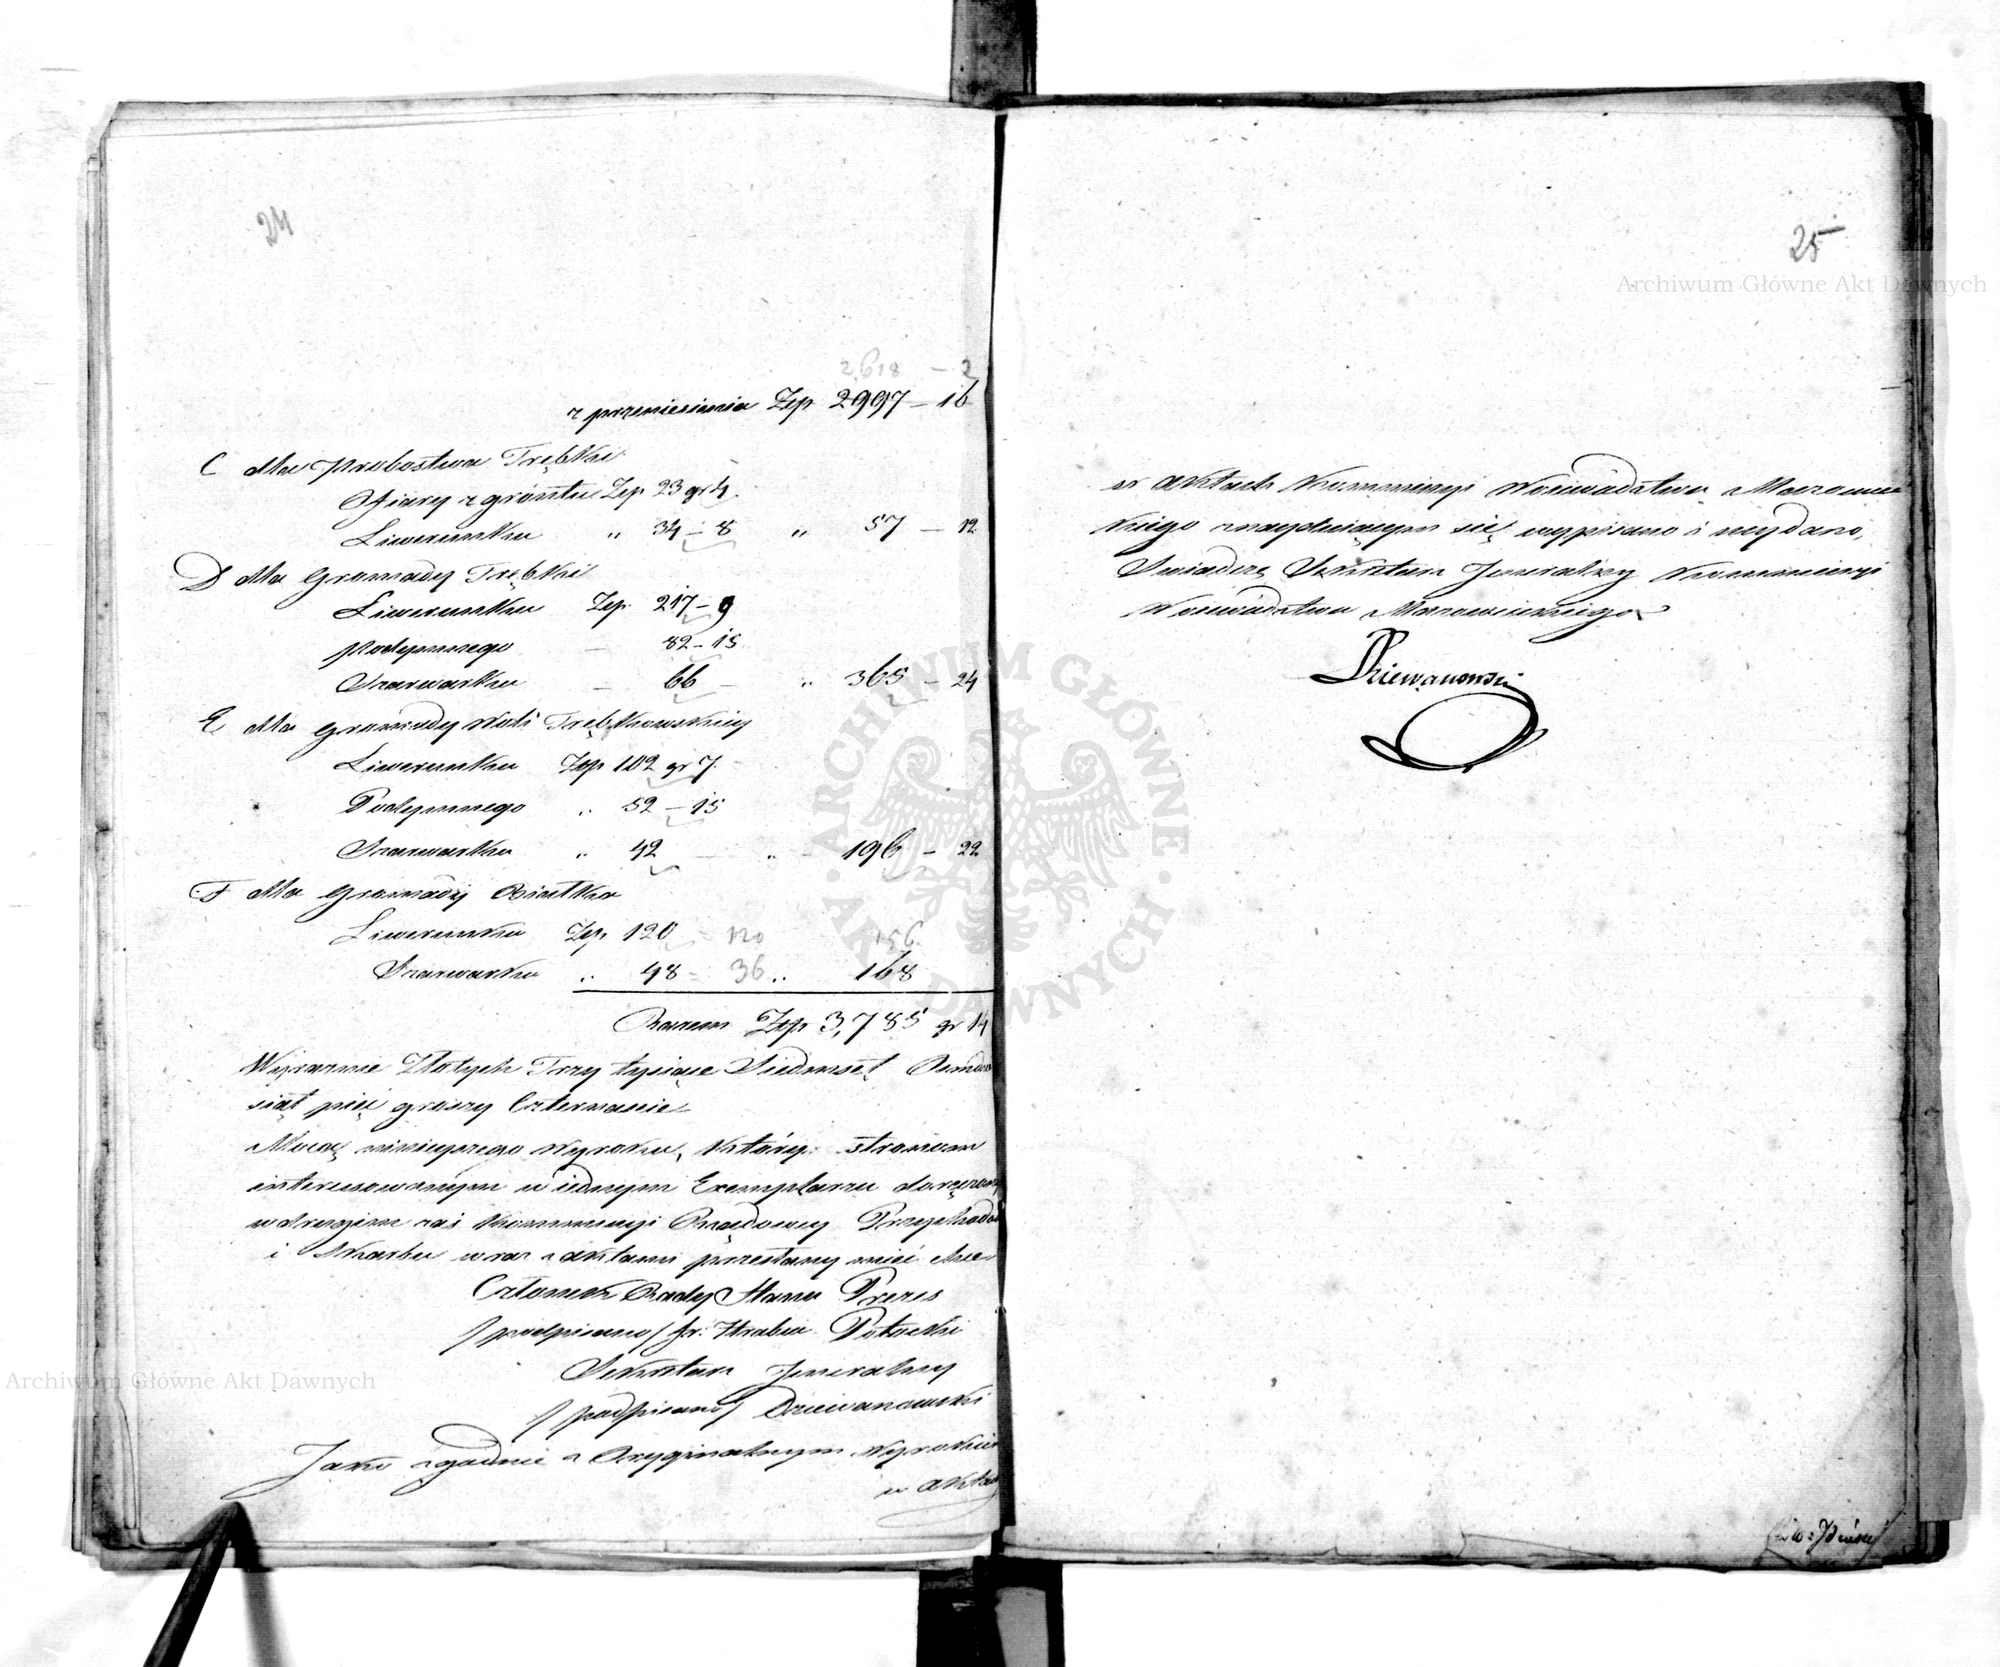 24
2,618 – 2
z przeniesienia Złp 2997 – 16
C dla Probostwa Trębki
Ofiary z gróntu Złp 23 gr 4.
Liwerunku " 34 – 8 " 57 – 12
D dla Gromady Trębki
Liwerunku Złp. 217 – 9
podymnego – 82 – 15
Szarwarku – 66 – " 365 – 24
E dla Gromady Woli Trębkowskiey
Liwerunku Złp 102 gr 7.
Podymnego " 52 – 15
Szarwarku " 42 – " 196 – 22
F dla Gromady Białka
Liwerunku Złp 120 – 120 156
Szarwarku " 48 – 36 " 168
Razem Złp 3,785 gr 14
Wyraźnie Złotych Trzy tysiące Siedmset Osmdzie
siąt pięć groszy Czternaście
Mocą ninieyszego Wyroku, który stronom
interessowanym w iednym Exemplarzu doręczony
w drugim zaś Kommissyi Rządowey Przychodów
i Skarbu wraz z aktami przesłany mieć chce
Członek Rady Stanu Prezes
/podpisano/ Hrabia Potocki
Sekretarz Jeneralny
/podpisano/ Dziewanowski
Jako zgodnie z Oryginalnym Wyrokiem
w Aktach
25
w Aktach Kommissyi Woiewództwa Mazowiec
kiego znayduiącym się wypisano i wydano,
Świadczę Sekretarz Jeneralny Kommissyi
Woiewództwa Mazowieckiego
Dziewanowski
Archiwum Główne Akt Dawnych
Archiwum Główne Akt Dawnych
ARCHIWUM GŁÓWNE
AKT DAWNYCH